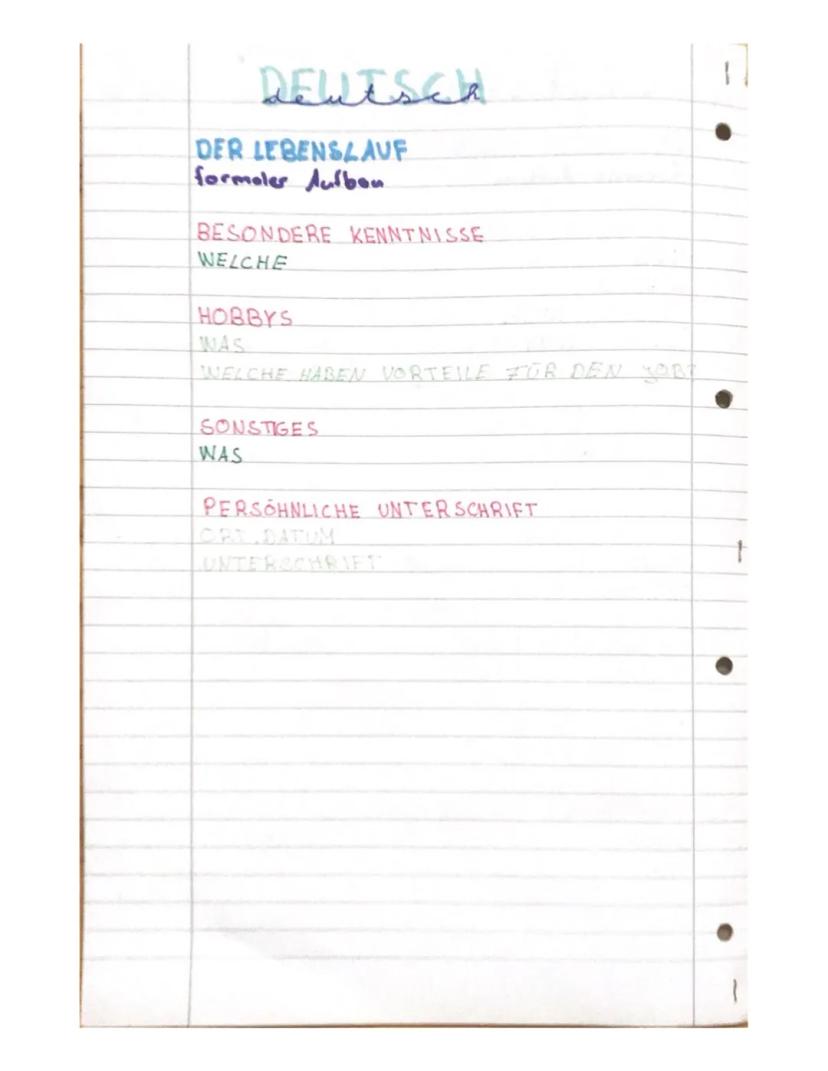 DEUTSCH
deutsch
DER LEBENSLAUF
formaler Aufbau
BESONDERE KENNTNISSE
WELCHE
HOBBYS
WAS
WELCHE HABEN VORTEILE FÜR DEN JOB?
SONSTIGES
WAS
PERSÖHNLICHE UNTERSCHRIFT
ORT, DATUM
UNTERSCHRIFT